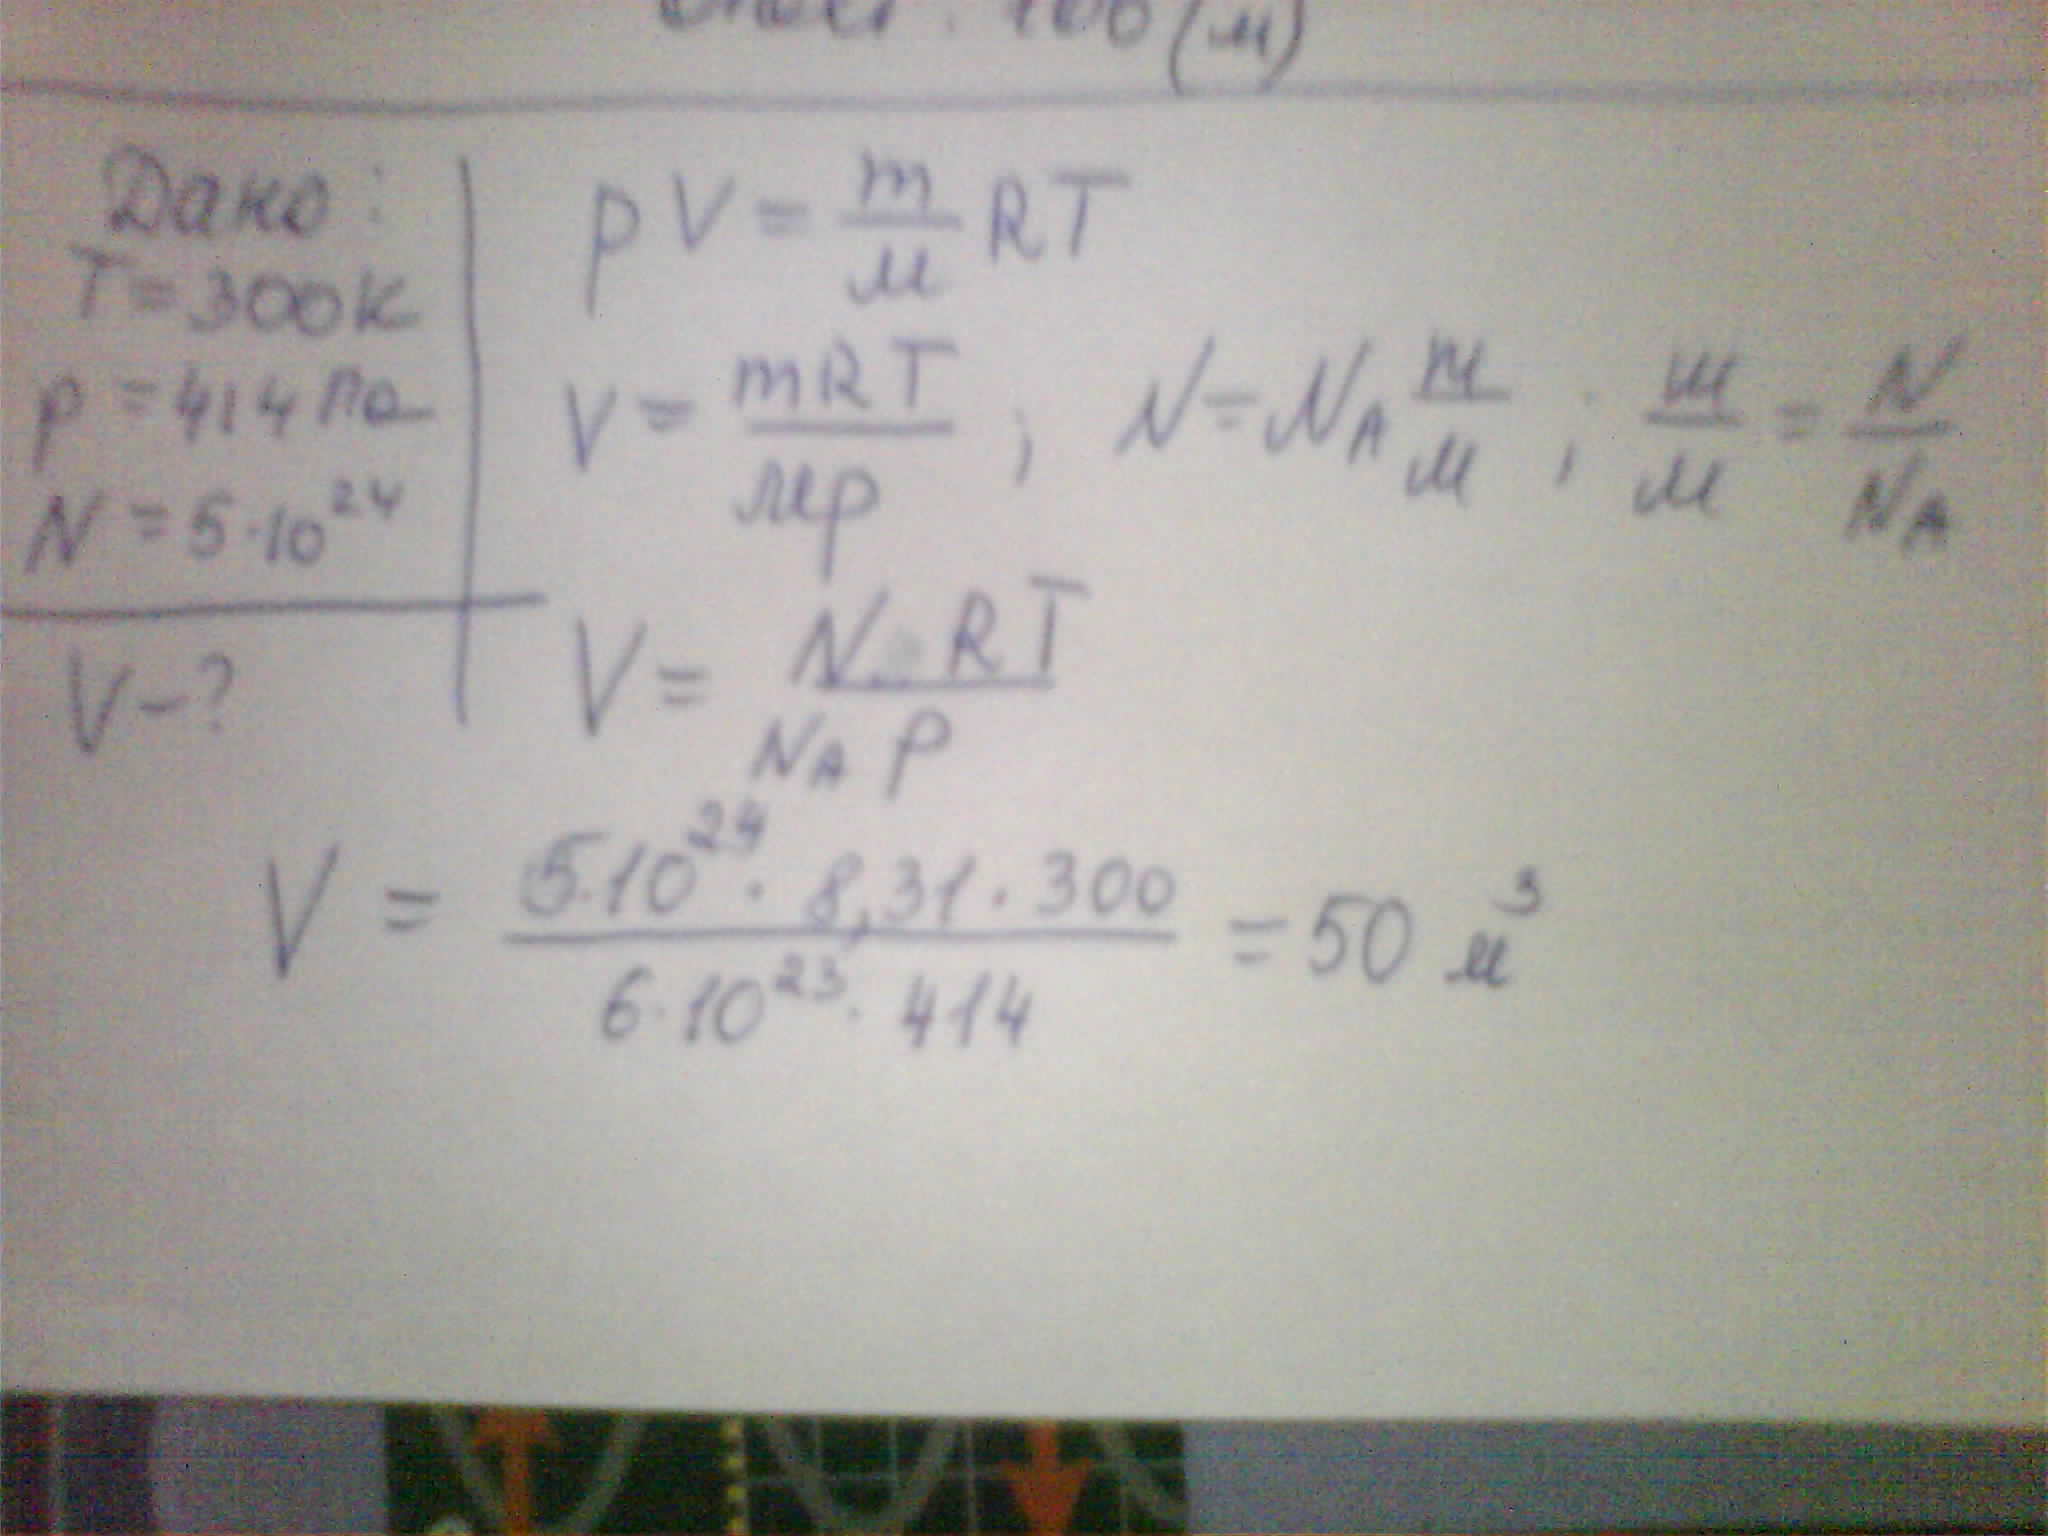 100 (м)
Дано:
T = 300К
p = 414 Па
N = 5·10²⁴
V – ?
pV = m/м RT
V = mRT/мp ; N = N_A m/м ; m/м = N/N_A
V = N·RT/N_A p
V = 5·10²⁴ · 8,31 · 300 / 6·10²³ · 414 = 50 м³